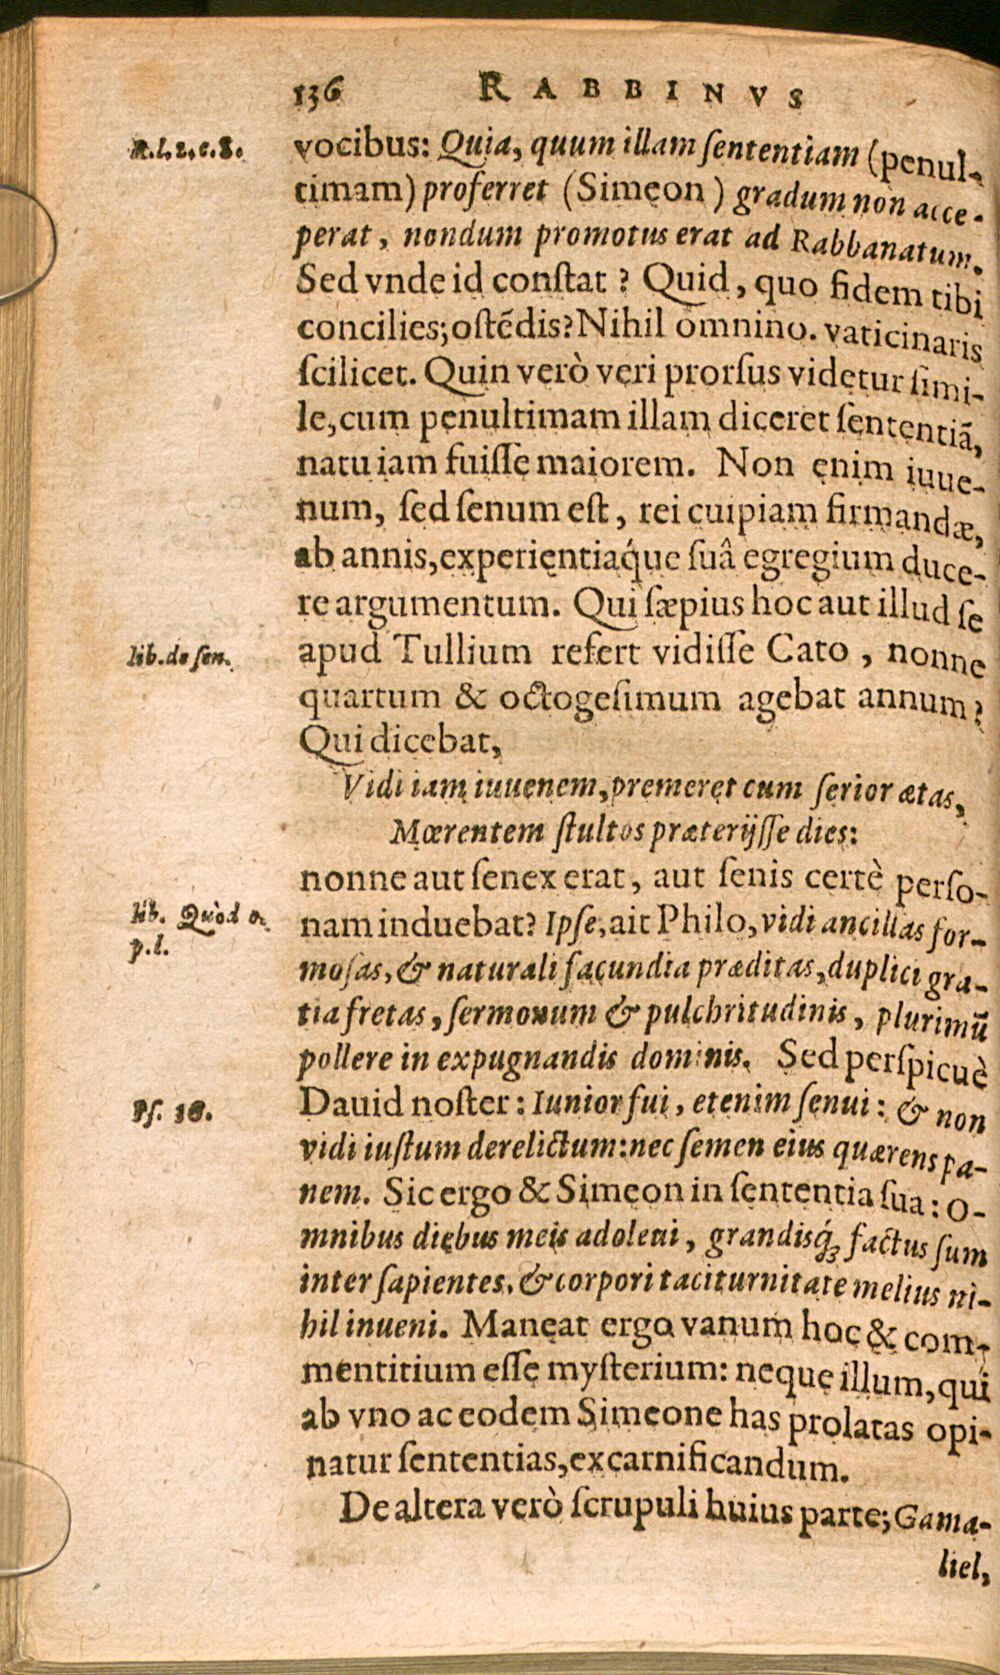 136 RABBINVS
R. l. 2. c. 8.
vocibus: Quia, quum illam ſententiam (penul-
timam) proferret (Simeon) gradum non acce-
perat, nondum promotus erat ad Rabbanatum.
Sed vnde id conſtat? Quid, quo fidem tibi
concilies; oſtẽdis? Nihil omnino. vaticinaris
ſcilicet. Quin verò veri prorſus videtur ſimi-
le, cum penultimam illam diceret ſententiã,
natu iam fuiſſe maiorem. Non enim iuue-
num, ſed ſenum eſt, rei cuipiam firmandæ,
ab annis, experientiaq́ue ſuâ egregium duce-
re argumentum. Qui ſæpius hoc aut illud ſe
lib. de ſen.
apud Tullium refert vidiſſe Cato, nonne
quartum & octogeſimum agebat annum?
Qui dicebat,
Vidi iam iuuenem, premeret cum ſerior ætas,
Mœrentem ſtultos præterijſſe dies:
nonne aut ſenex erat, aut ſenis certè perſo-
lib. Quòd o.
p. l.
nam induebat? Ipſe, ait Philo, vidi ancillas for-
moſas, & naturali facundia præditas, duplici gra-
tia fretas, ſermonum & pulchritudinis, plurimũ
pollere in expugnandis dominis. Sed perſpicuè
Pſ. 36.
Dauid noſter: Iunior fui, etenim ſenui: & non
vidi iuſtum derelictum: nec ſemen eius quærens pa-
nem. Sic ergo & Simeon in ſententia ſua: O-
mnibus diebus meis adoleui, grandisq́; factus ſum
inter ſapientes, & corpori taciturnitate melius ni-
hil inueni. Maneat ergo vanum hoc & com-
mentitium eſſe myſterium: neque illum, qui
ab vno ac eodem Simeone has prolatas opi-
natur ſententias, excarnificandum.
De altera verò ſcrupuli huius parte; Gama-
liel,